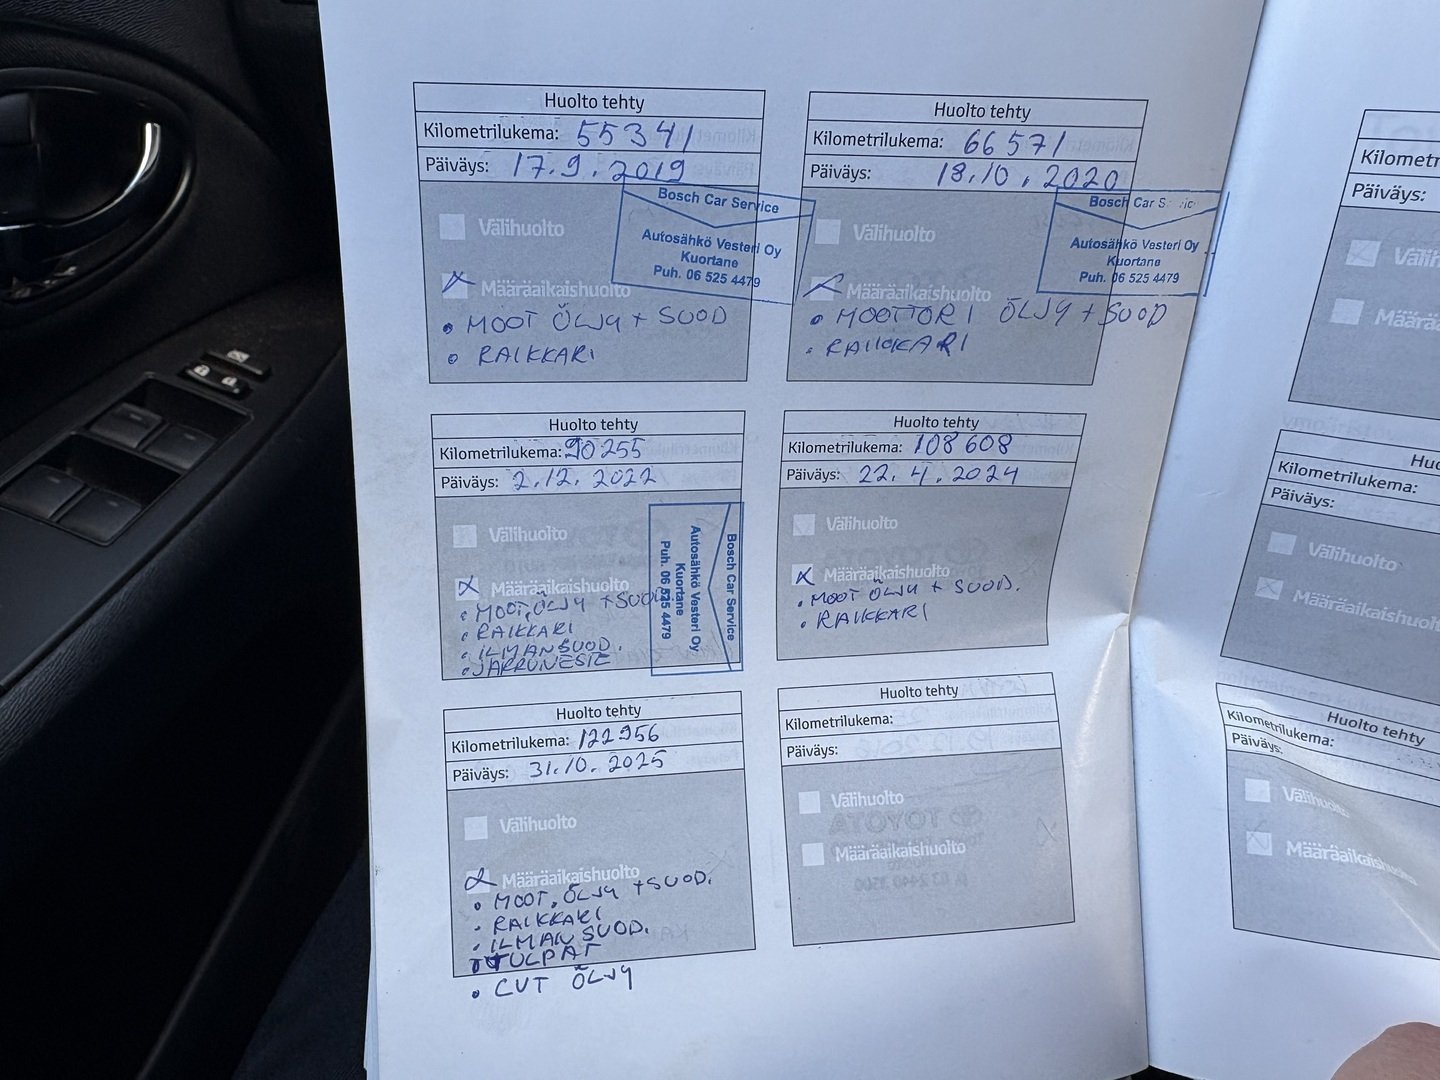 Huolto tehty
Kilometrilukema: 55341
Päiväys: 17.9.2019
Välihuolto
Määräaikaishuolto
• MOOT ÖLJY + SUOD
• RAIKKARI
Bosch Car Service
Autosähkö Vesteri Oy
Kuortane
Puh. 06 525 4479
Huolto tehty
Kilometrilukema: 66571
Päiväys: 18.10.2020
Välihuolto
Määräaikaishuolto
• MOOTTORI ÖLJY + SUOD
• RAIKKARI
Bosch Car Servic
Autosähkö Vesteri Oy
Kuortane
Puh. 06 525 4479
Huolto tehty
Kilometrilukema: 90255
Päiväys: 2.12.2022
Välihuolto
Määräaikaishuolto
• MOOT, ÖLJY + SUOD.
• RAIKKARI
• ILMANSUOD.
• JARRUNESTE
Bosch Car Service
Autosähkö Vesteri Oy
Kuortane
Puh. 06 525 4479
Huolto tehty
Kilometrilukema: 108608
Päiväys: 22.4.2024
Välihuolto
Määräaikaishuolto
• MOOT ÖLJY + SUOD.
• RAIKKARI
Huolto tehty
Kilometrilukema: 122956
Päiväys: 31.10.2025
Välihuolto
Määräaikaishuolto
• MOOT. ÖLJY + SUOD.
• RAIKKARI
• ILMAN SUOD.
TULPAT
• CVT ÖLJY
Huolto tehty
Kilometrilukema:
Päiväys:
Välihuolto
Määräaikaishuolto
Kilometr
Päiväys:
Välih
Määrä
Huo
Kilometrilukema:
Päiväys:
Välihuolto
Määräaikaishuolt
Huolto tehty
Kilometrilukema:
Päiväys:
Välihuolto
Määräaikaishuolto